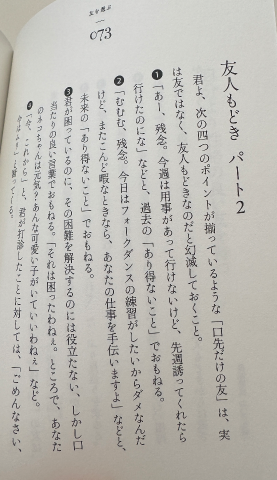 友を選ぶ
073
友人もどき パート2
君よ、次の四つのポイントが揃っているような「口先だけの友」は、実
は友ではなく、友人もどきなのだと幻滅しておくこと。
❶「あー、残念。今週は用事があって行けないけど、先週誘ってくれたら
行けたのにな」などと、過去の「あり得ないこと」でおもねる。
❷「むむむ、残念。今日はフォークダンスの練習がしたいからダメなんだ
けど、またこんど暇なときなら、あなたの仕事を手伝いますよ」などと、
未来の「あり得ないこと」でおもねる。
❸君が困っているのに、その困難を解決するのには役立たない、しかし口
当たりの良い言葉でおもねる。「それは困ったわねぇ。ところで、あなた
のネコちゃんは元気？あんな可愛い子がいていいわねぇ」など。
❹「今、これから」と、君が打診したことに対しては、「ごめんなさい、
今は